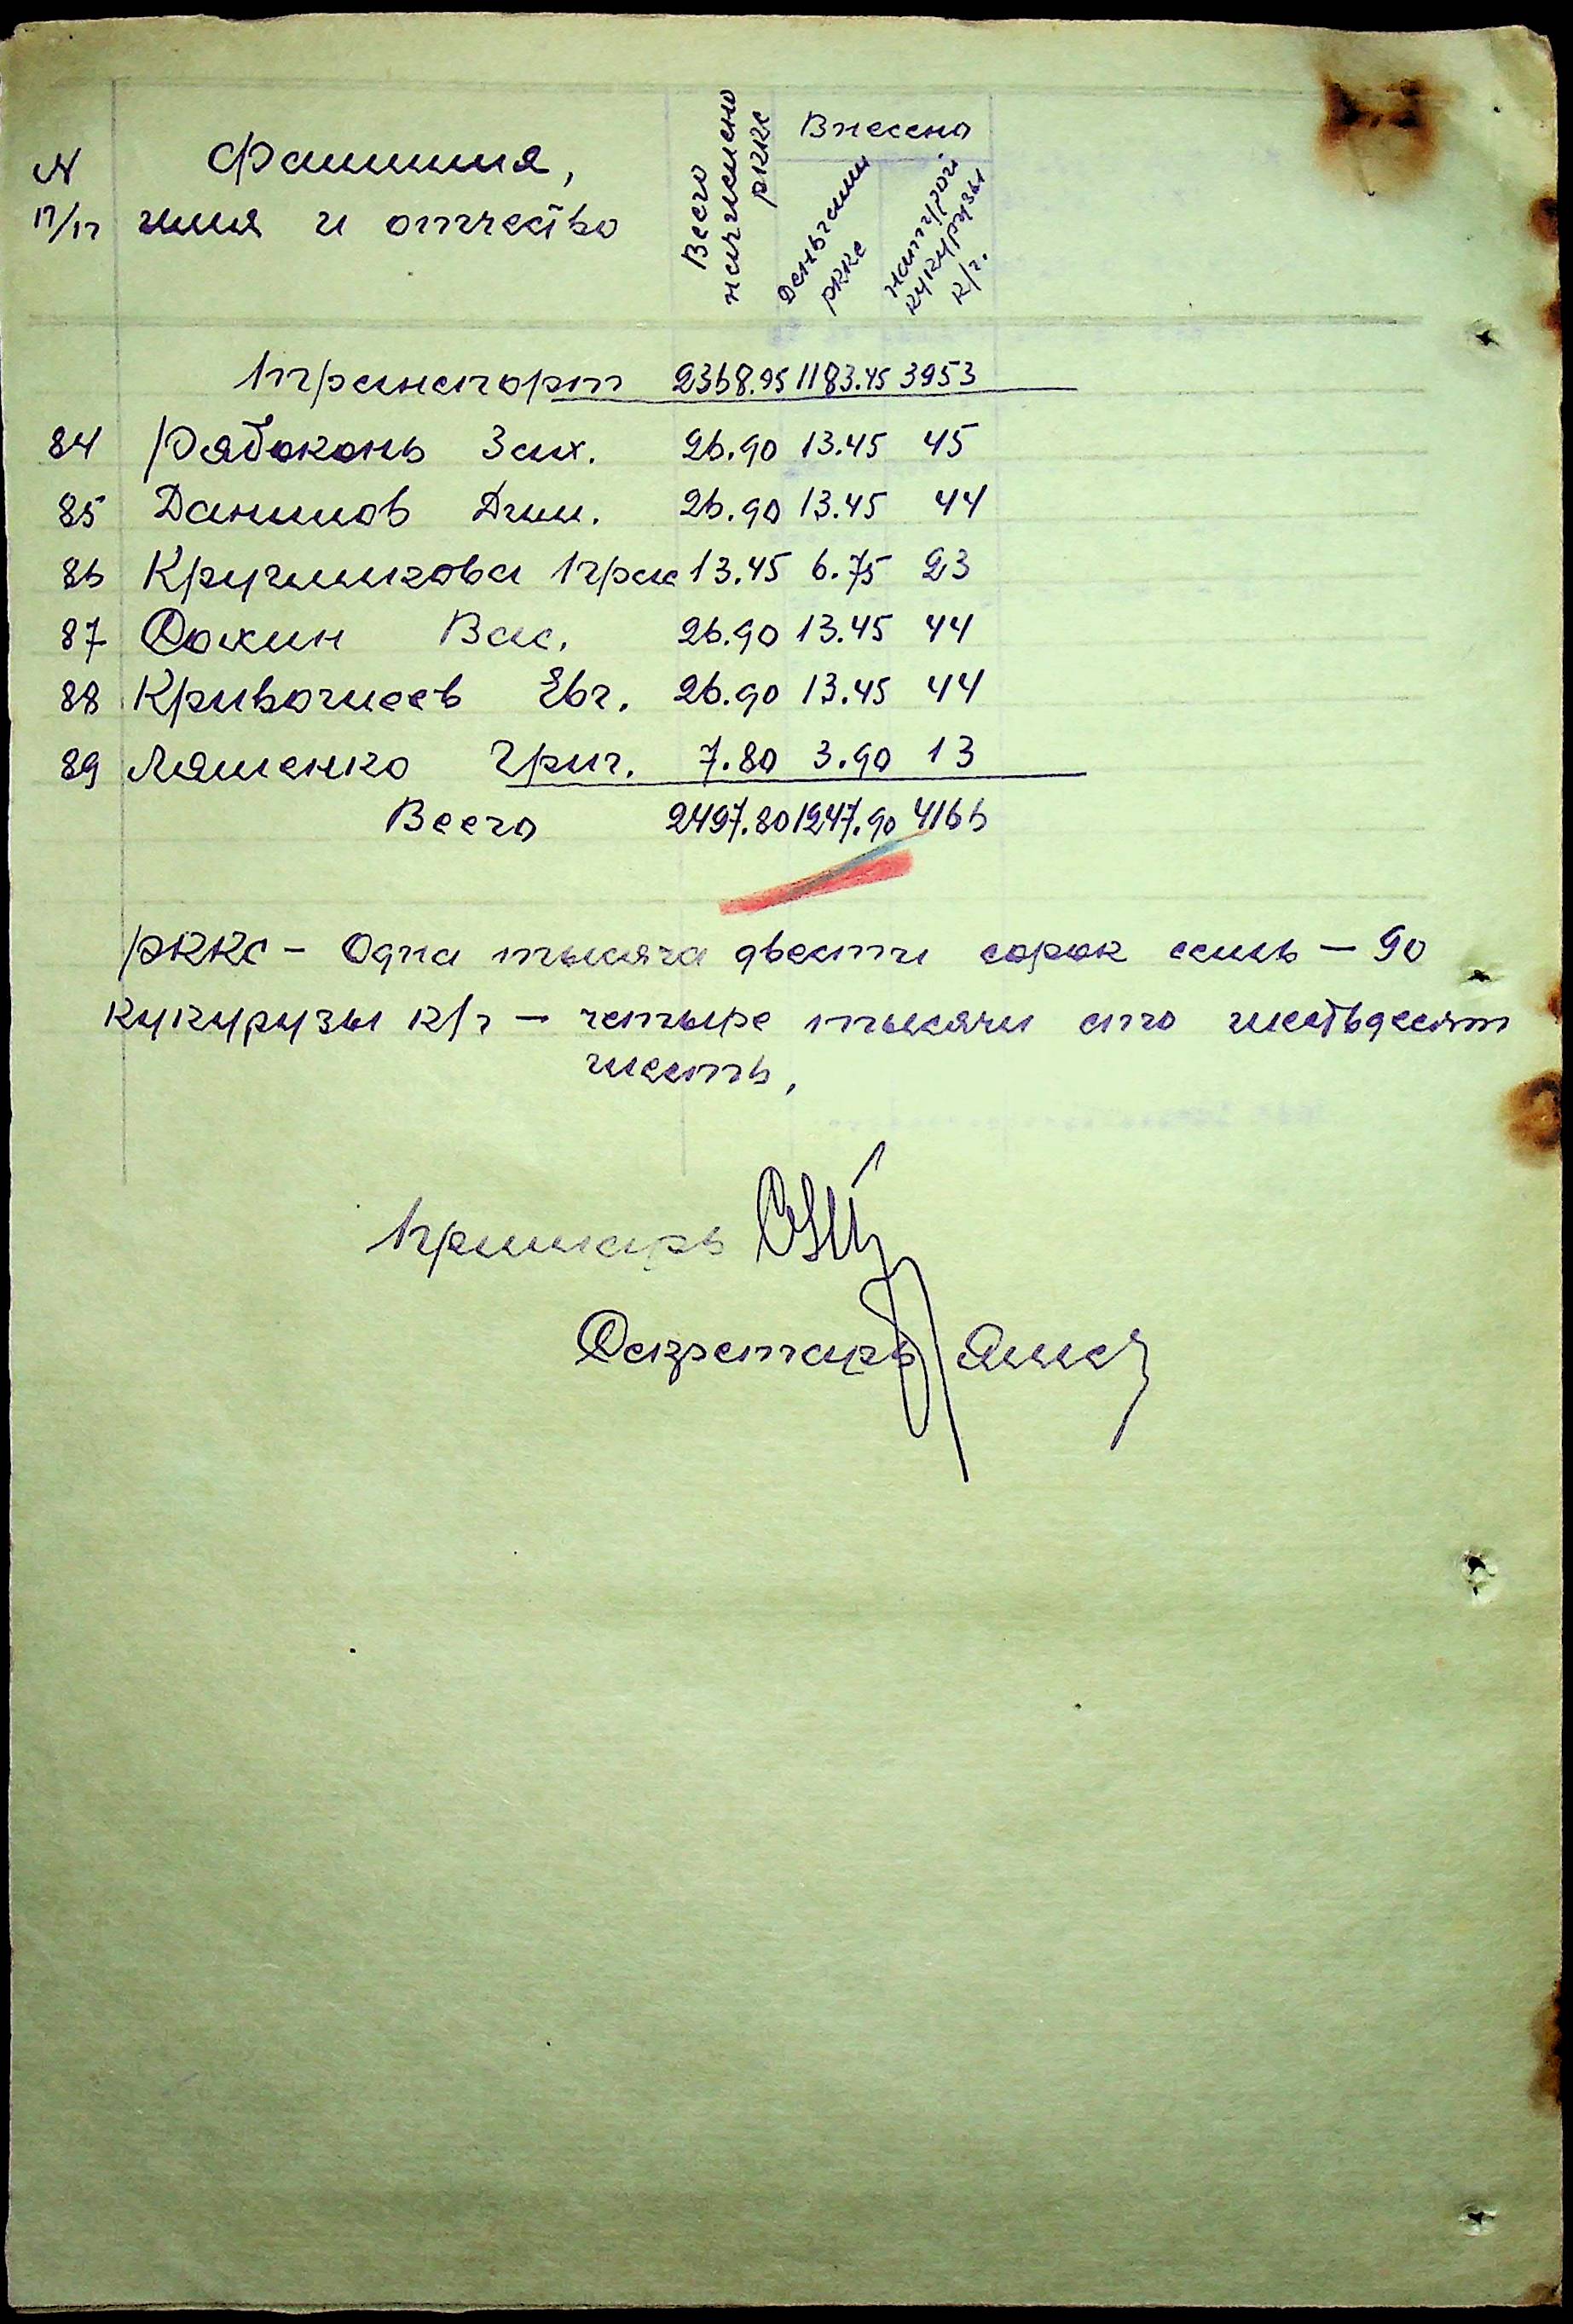 N Фамилия,
п/п имя и отчество
Всего начислено рккс
Внесено
Деньгами рккс
натурой кукурузы к/г.
Транспорт 2368.95 1183.45 3953
84 Рябоконь Зах. 26.90 13.45 45
85 Данилов Дим. 26.90 13.45 44
86 Кручинкова Прас 13.45 6.75 23
87 Фокин Вас. 26.90 13.45 44
88 Кривошеев Евг. 26.90 13.45 44
89 Ляшенко Григ. 7.80 3.90 13
Всего 2497.80 1247.90 4166
рккс - Одна тысяча двести сорок семь - 90
кукурузы к/г - четыре тысячи сто шестьдесят
шесть,
Примарь
Секретарь